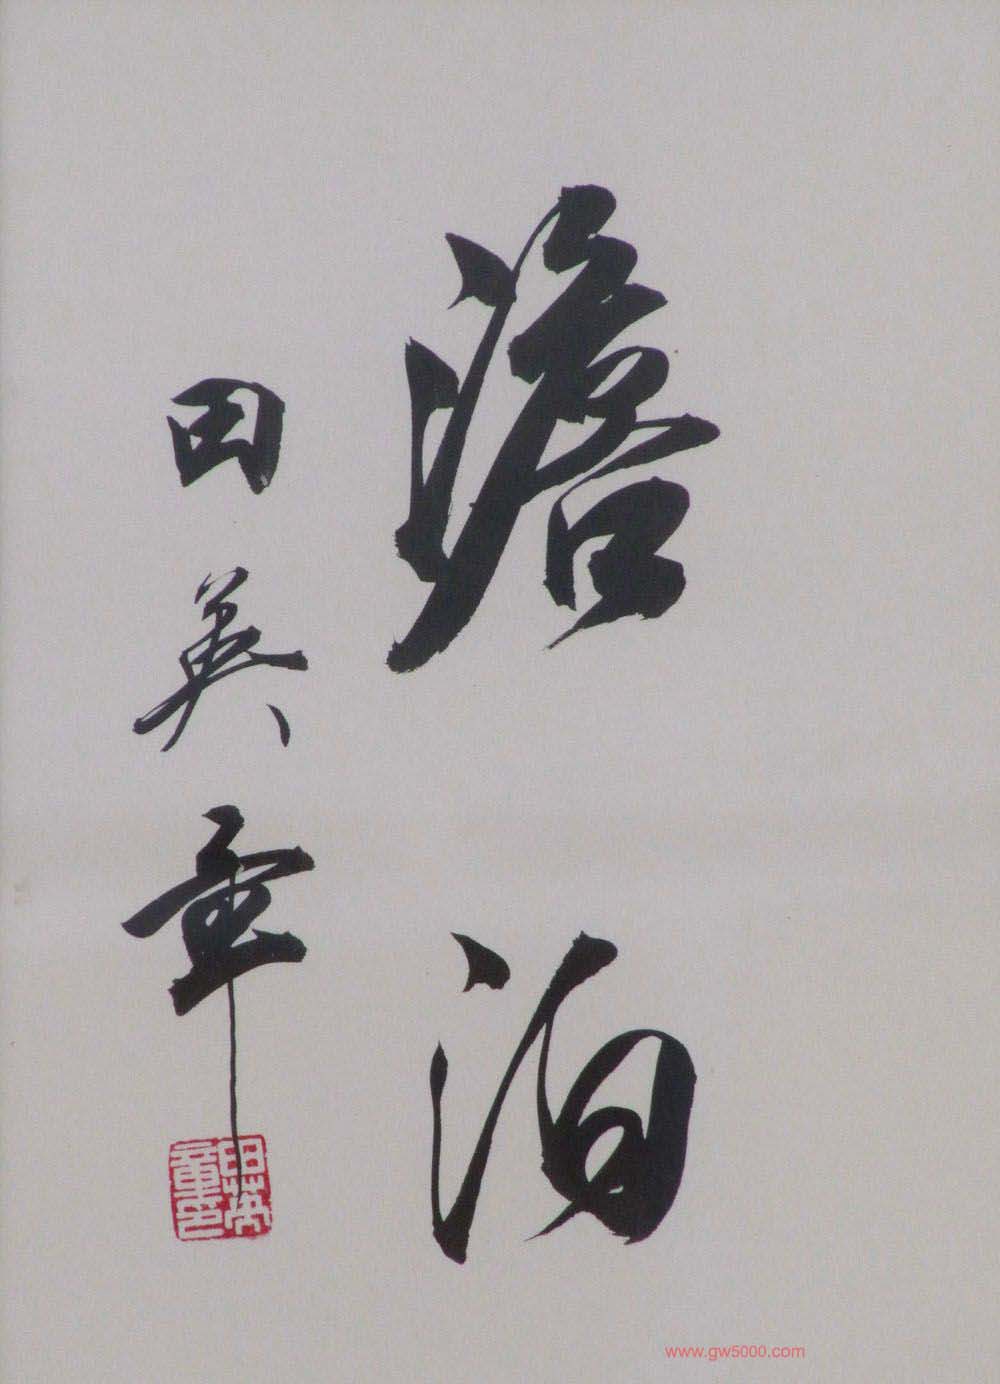 澹泊
田英章
田英章印
www.gw5000.com